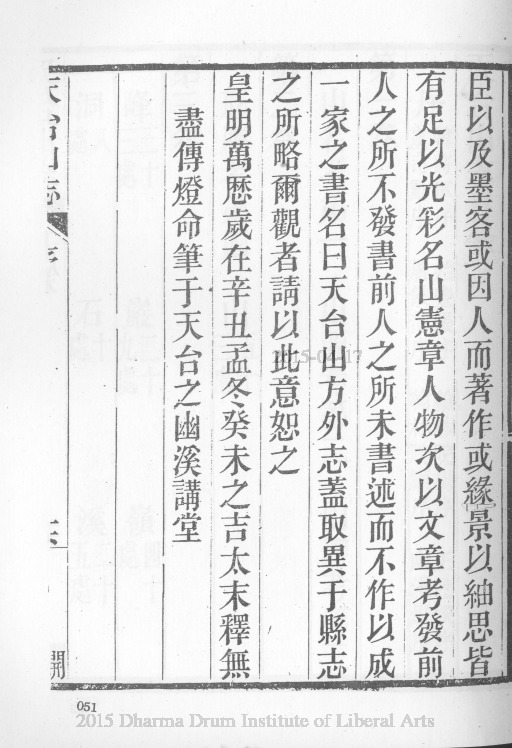 臣以及墨客或因人而著作或緣景以紬思皆
有足以光彩名山憲章人物次以文章考發前
人之所不發書前人之所未書述而不作以成
一家之書名曰天台山方外志蓋取異于縣志
之所略爾觀者請以此意恕之
皇明萬歷歲在辛丑孟冬癸未之吉太末釋無
盡傳燈命筆于天台之幽溪講堂
天台山志
2015-04-17
051
2015 Dharma Drum Institute of Liberal Arts